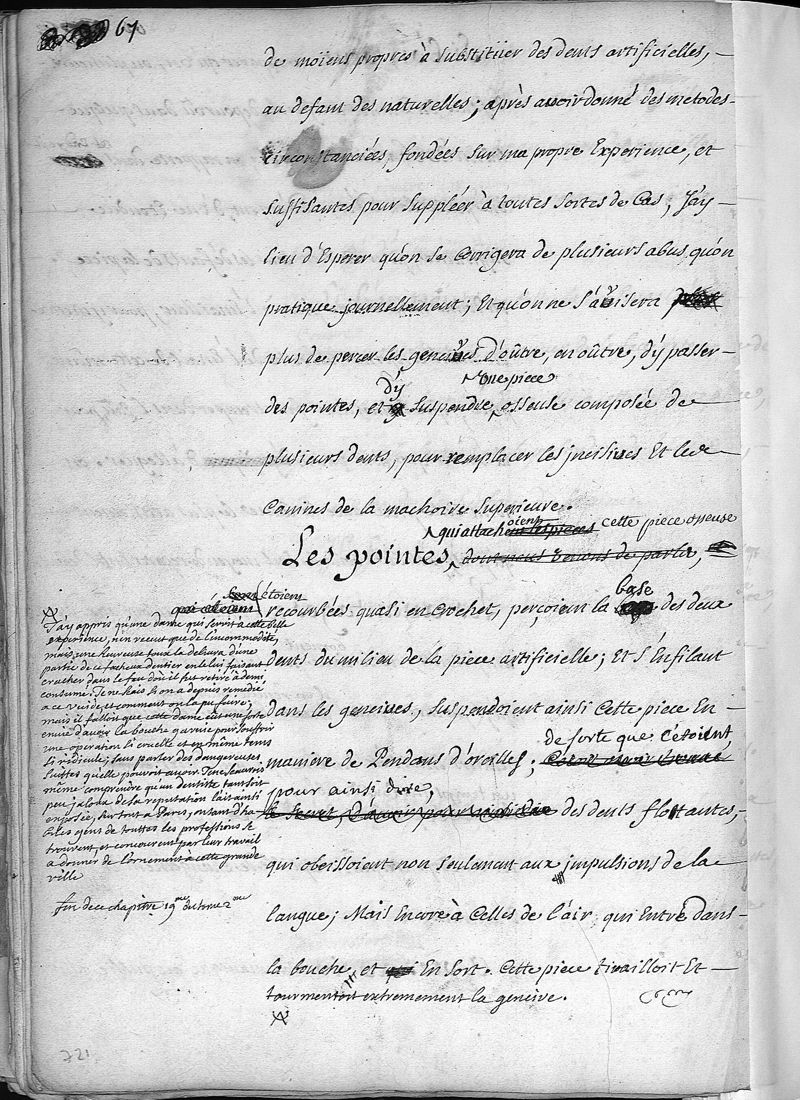 67
de moïens propres à substitüer des dents artificielles,
au defaut des naturelles; après avoir donné des metodes
circonstanciées fondées sur ma propre Experience, et
suffisantes pour suppléer à toutes sortes de Cas, J'ay
lieu d'Esperer qu'on se Corrigera de plusieurs abus qu'on
pratique journellement; Et qu'on ne s'avisera
plus de percer les gencives d'oûtre, en oûtre, d'y passer
d'y une piece
des pointes, et suspendre osseuse composée de
plusieurs dents, pour remplacer les jncisives Et les
Canines de la machoire Superieure.
qui attachoient cette piece osseuse
Les pointes, dont nous venons de parler,
étoient base
qui étoient recourbées quasi en Crochet, perçoient la des deux
dents du milieu de la piece artificielle; Et s'Enfilant
dans les gencives, suspendoient ainsi Cette piece En
de sorte que c'étoient,
maniere de Pendans d'oreilles;
pour ainsi dire,
des dents flottantes,
qui obeïssoient non seulement aux jmpulsions de la
langue; Mais Encore à Celles de l'air qui Entre dans
la bouche, et En sort. Cette piece tirailloit Et
tourmentoit extremement la gencive.
J'ay appris qu'une dame qui servit à cette belle
experience, n'en recut que de l'incommodité,
mais une heureuse toux la delivra d'une
partie de ce facheux dentier en le lui faisant
cracher dans le feu d'où il fut retiré à demi
consumé. Je ne scais si on a depuis remedié
a ce vuide, et comment on l'a pu faire;
mais il falloit que cette dame eut une forte
envie d'avoir la bouche garnie pour souffrir
une operation si cruelle et en même tems
si ridicule; sans parler des dangereuses
suittes qu'elle pouvoit avoir. Je ne scaurois
même comprendre qu'un dentiste tant soit
peu jaloux de sa reputation l'ait ainsi
exposée, surtout a Paris, ou tant d'ha-
biles gens de touttes les professions se
trouvent, et concourent par leur travail
a donner de l'ornement a cette grande
ville
fin de ce chapitre 19me du tome 2me
721